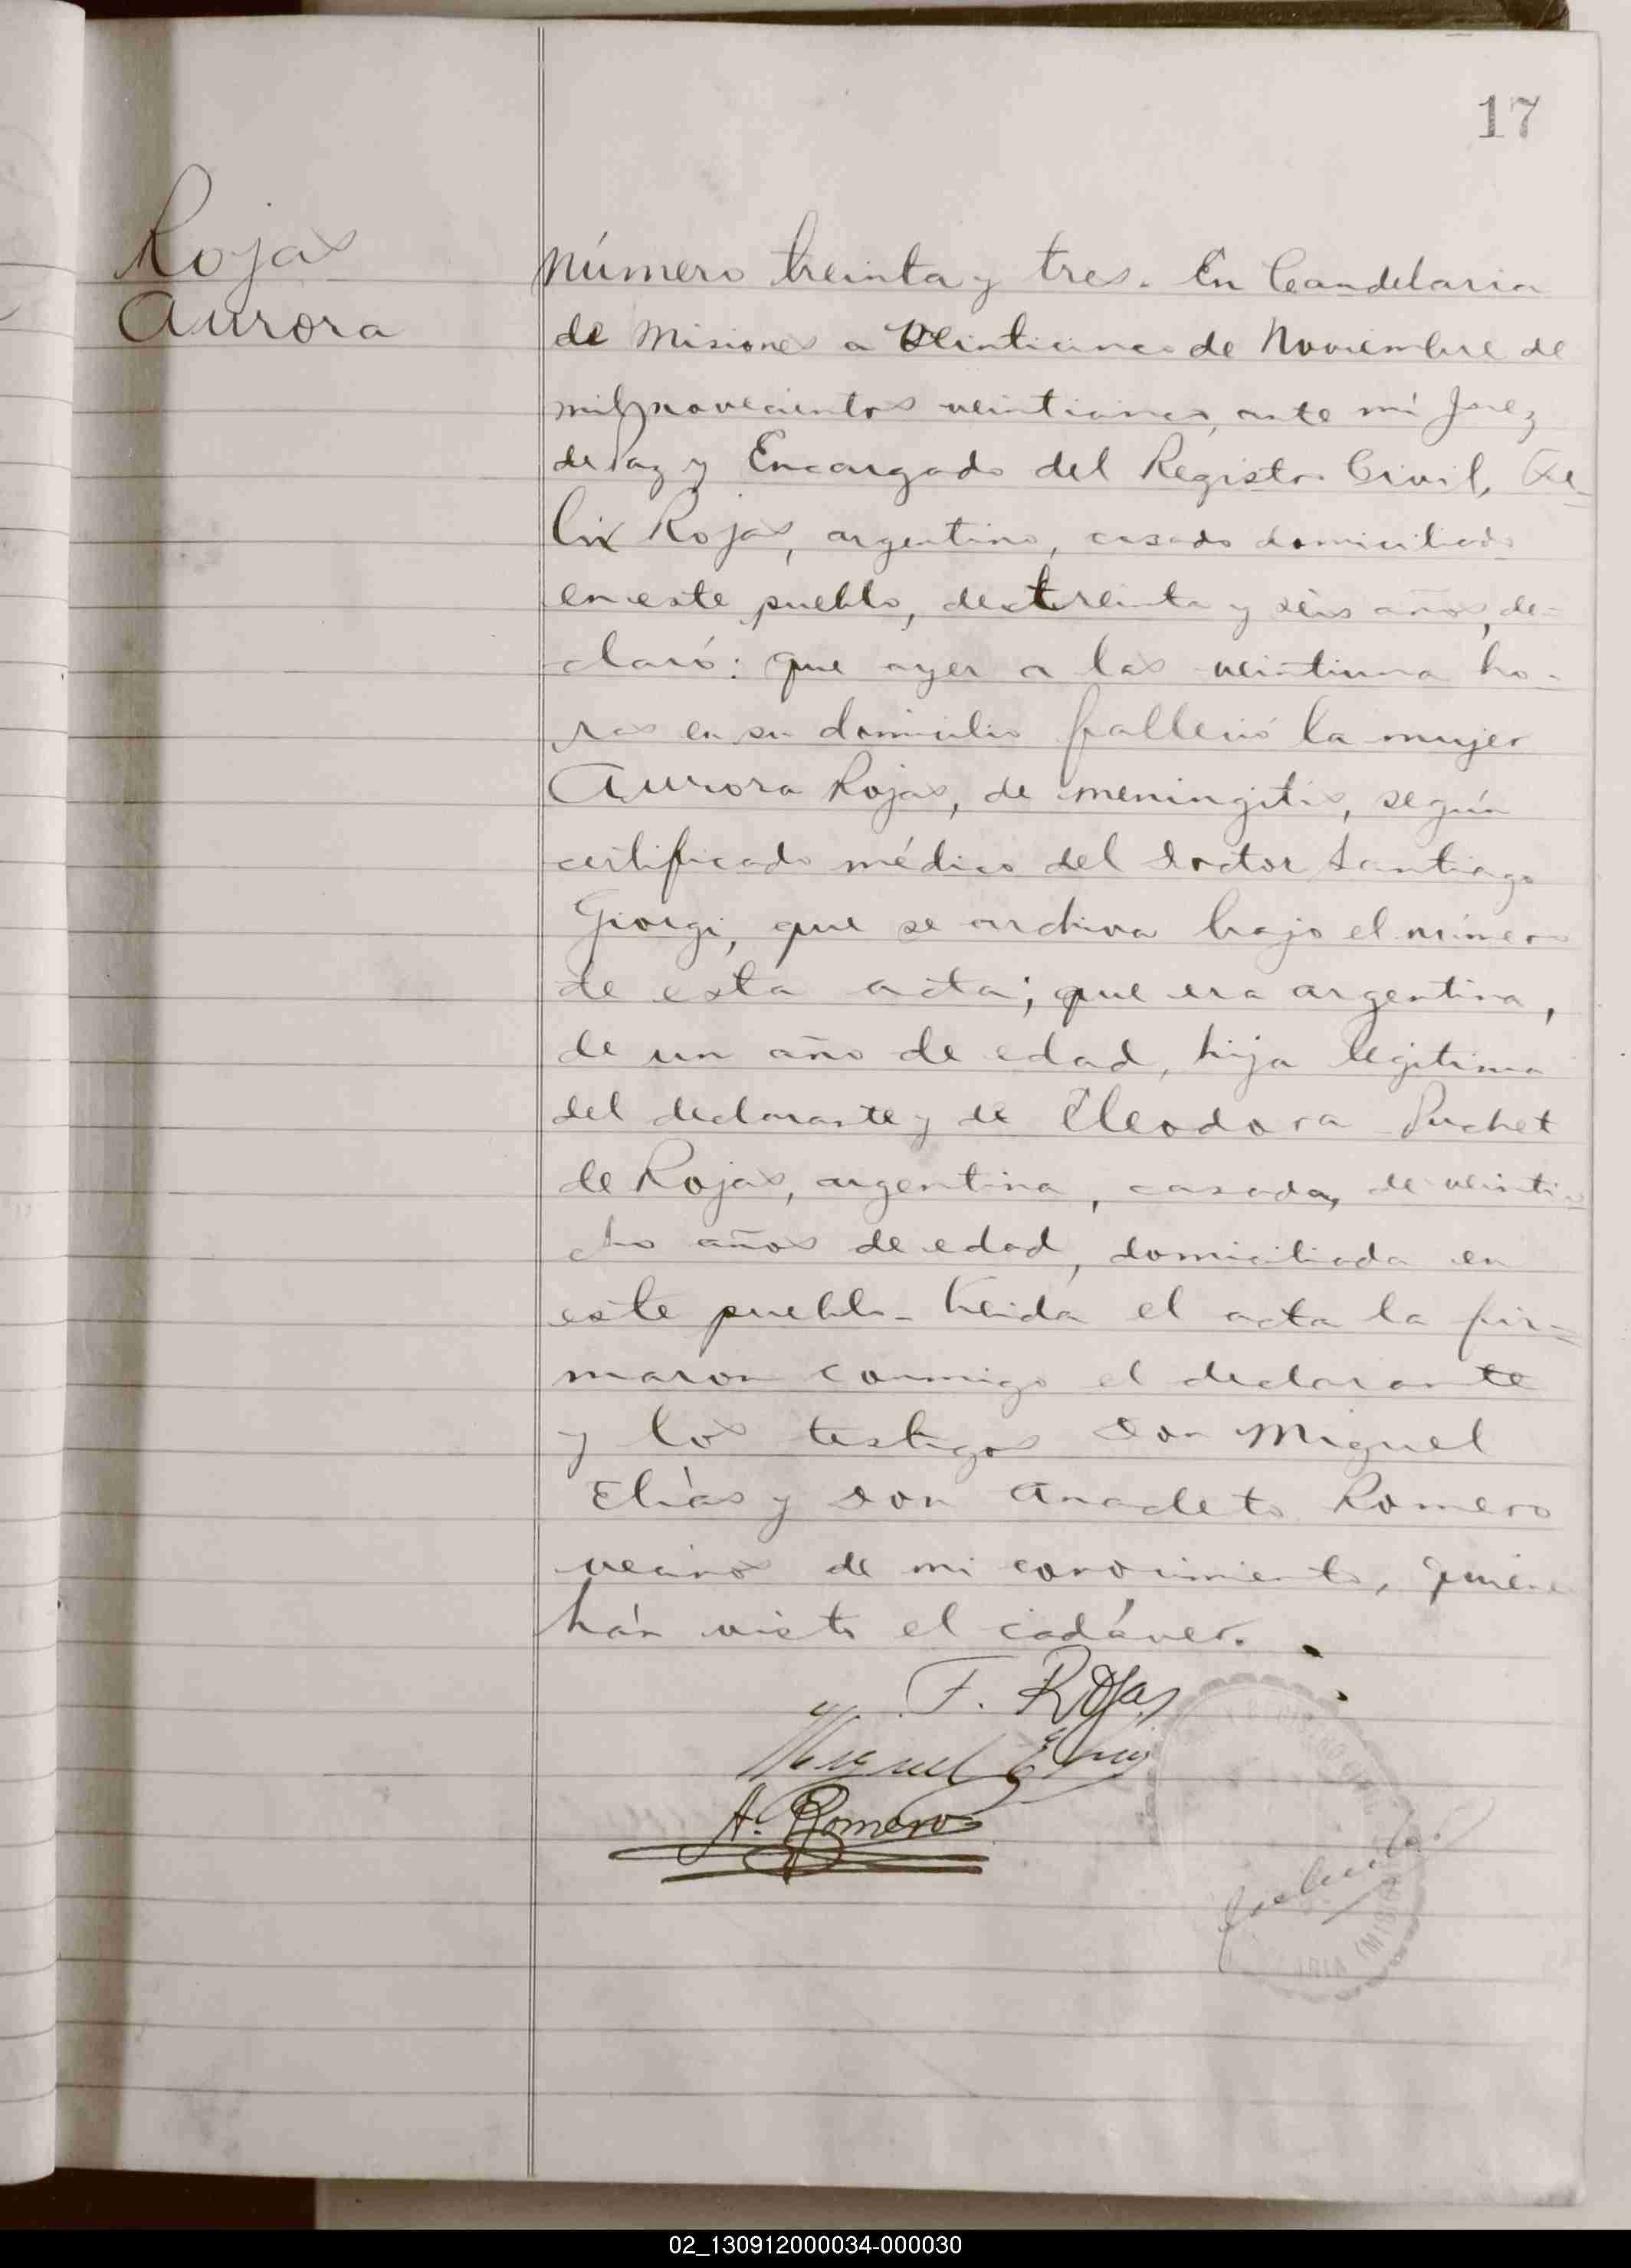 17
Rojas
Aurora
Número treinta y tres. En Candelaria
de Misiones a Veinticinco de Noviembre de
mil novecientos veinticinco, ante mí Juez
de Paz y Encargado del Registro Civil, Fe-
lix Rojas, argentino, casado domiciliado
en este pueblo, de treinta y seis años, de-
claró: que ayer a las veintiuna ho-
ras en su domicilio falleció la mujer
Aurora Rojas, de meningitis, según
certificado médico del Doctor Santiago
Giorgi, que se archiva bajo el número
de esta acta; que era argentina,
de un año de edad, hija legitima
del declarante y de Eleodora Puchet
de Rojas, argentina, casada, de veintio
cho años de edad, domiciliada en
este pueblo- Leida el acta la fir-
maron conmigo el declarante
y los testigos Don Miguel
Elías y Don Anacleto Romero
vecinos de mi conocimiento, quiene
hán visto el cadáver.
F. Rojas
Miguel Elias
A. Romero
02_130912000034-000030